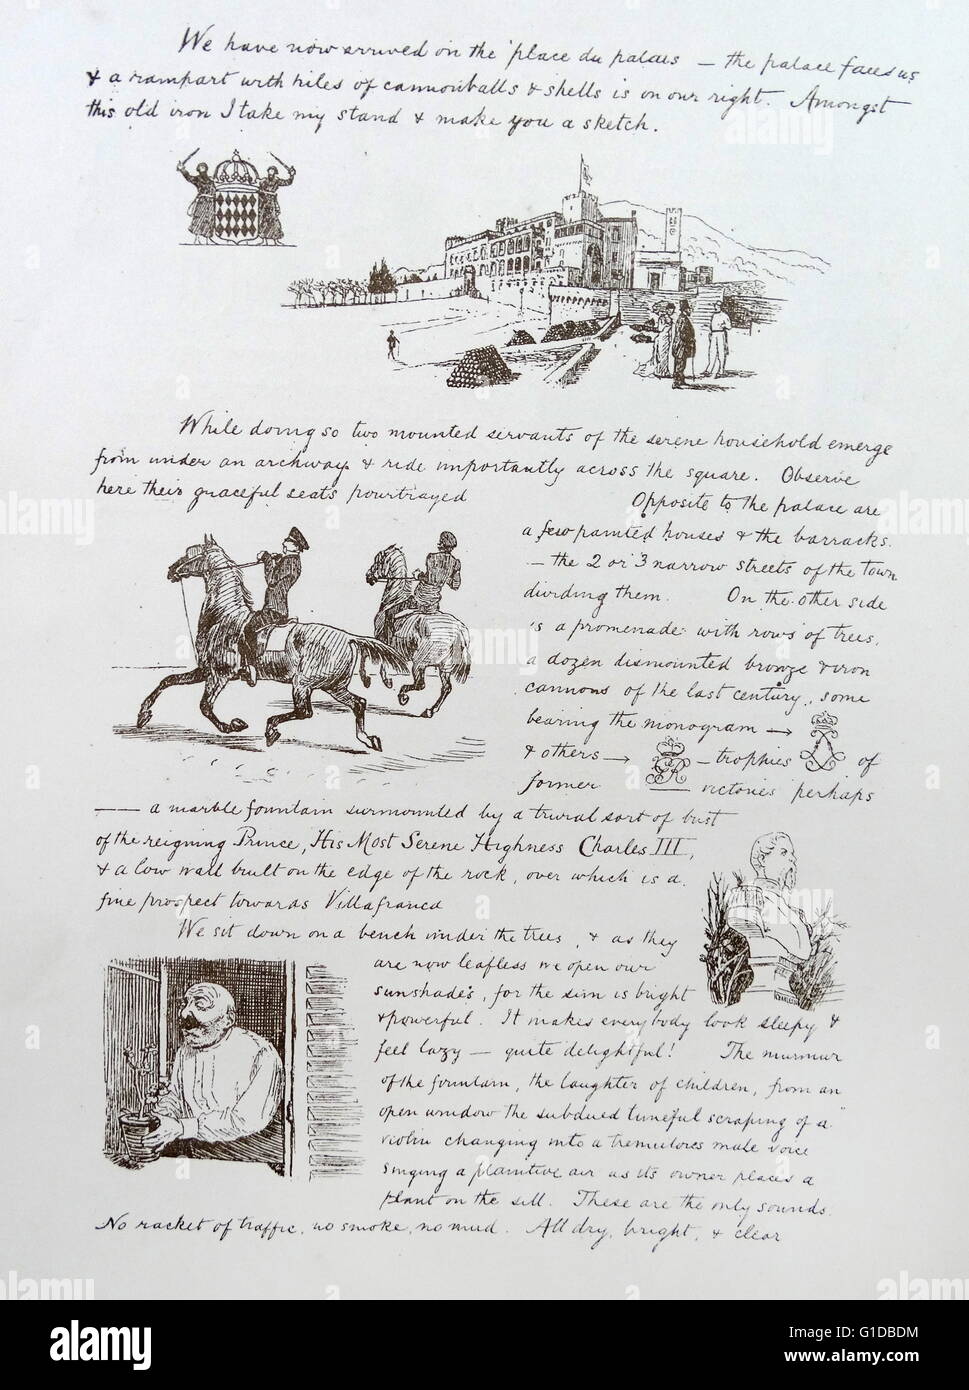 We have now arrived on the place du palais — the palace faces us
& a rampart with piles of cannonballs & shells is on our right. Amongst
this old iron I take my stand & make you a sketch.
While doing so two mounted servants of the serene household emerge
from under an archway & ride importantly across the square. Observe
here their graceful seats pourtrayed
Opposite to the palace are
a few painted houses & the barracks.
— the 2 or 3 narrow streets of the town
dividing them. On the other side
is a promenade with rows of trees,
a dozen dismounted bronze & iron
cannons of the last century, some
bearing the monogram →
& others → — trophies of
former victories perhaps
— a marble fountain surmounted by a sort of bust
of the reigning Prince, His Most Serene Highness Charles III,
& a low wall built on the edge of the rock, over which is a
fine prospect towards Villafranca
We sit down on a bench under the trees, & as they
are now leafless we open our
sunshades, for the sun is bright
& powerful. It makes everybody look sleepy &
feel lazy — quite delightful! The murmur
of the fountain, the laughter of children, from an
open window the subdued tuneful scraping of a
violin changing into a tremulous male voice
singing a plaintive air as its owner places a
plant on the sill. These are the only sounds.
No racket of traffic, no smoke, no mud. All dry, bright, & clear
alamy
a
alamy stock photo
G1DBDM
www.alamy.com